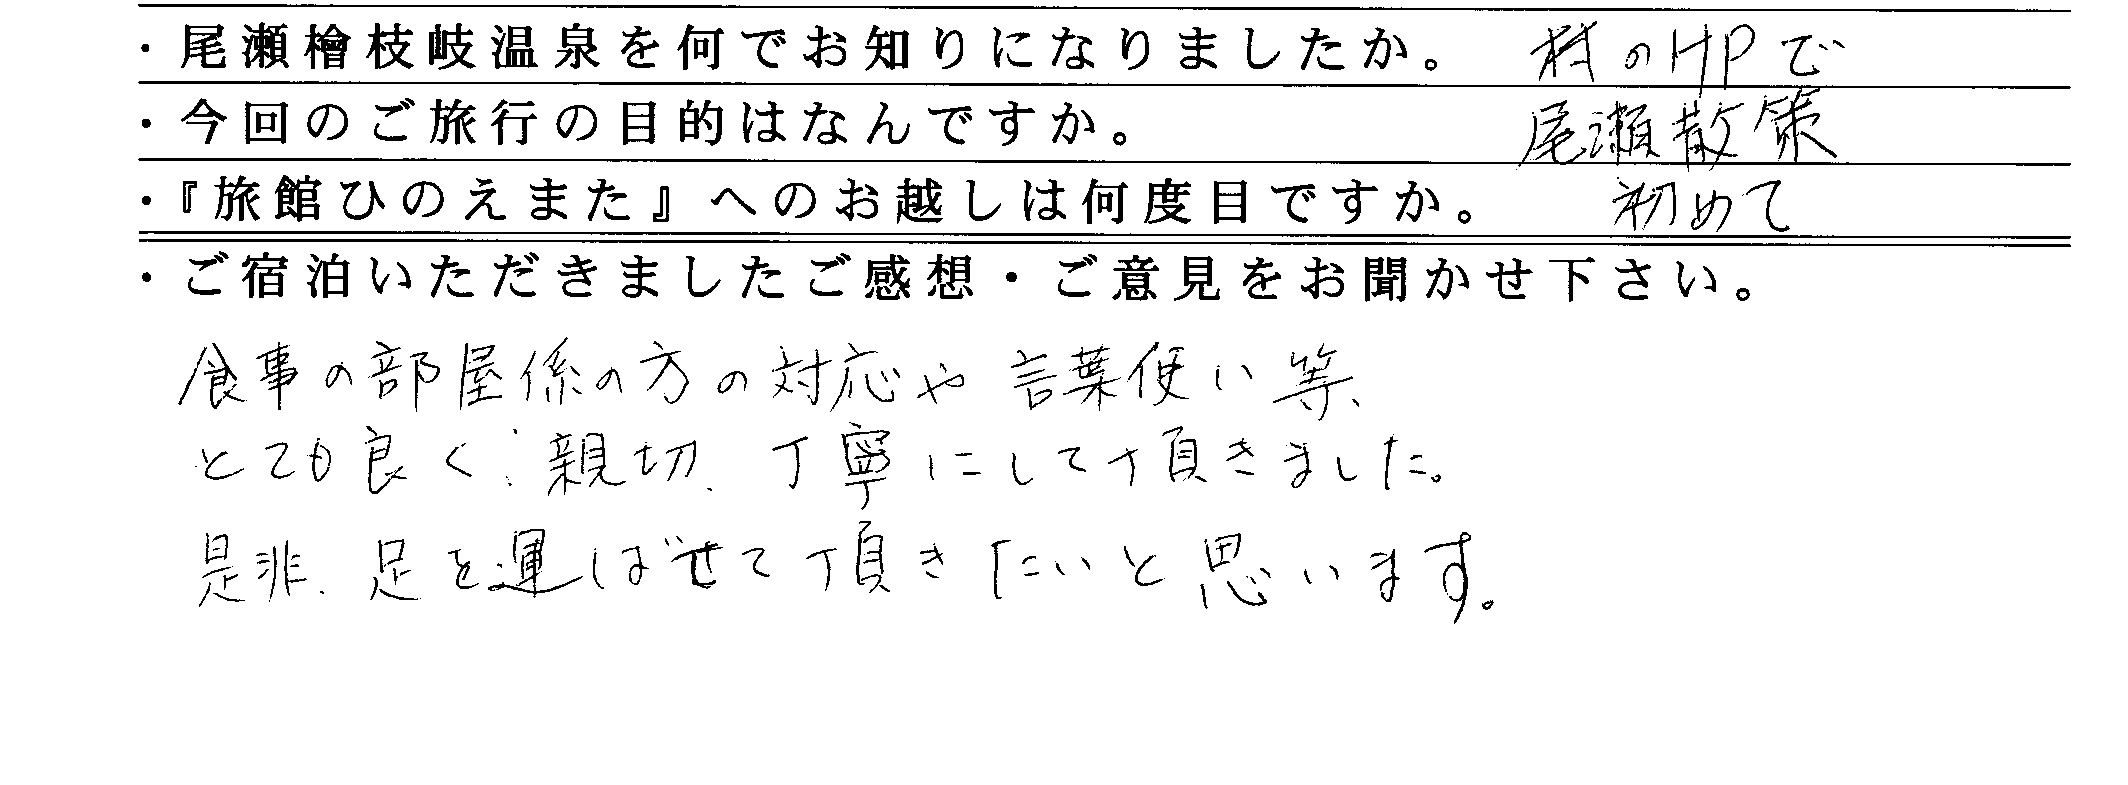 ・尾瀬檜枝岐温泉を何でお知りになりましたか。 村のHPで
・今回のご旅行の目的はなんですか。 尾瀬散策
・『旅館ひのえまた』へのお越しは何度目ですか。 初めて
・ご宿泊いただきましたご感想・ご意見をお聞かせ下さい。
食事の部屋係の方の対応や言葉使い等、
とても良く、親切、丁寧にして頂きました。
是非、足を運ばせて頂きたいと思います。